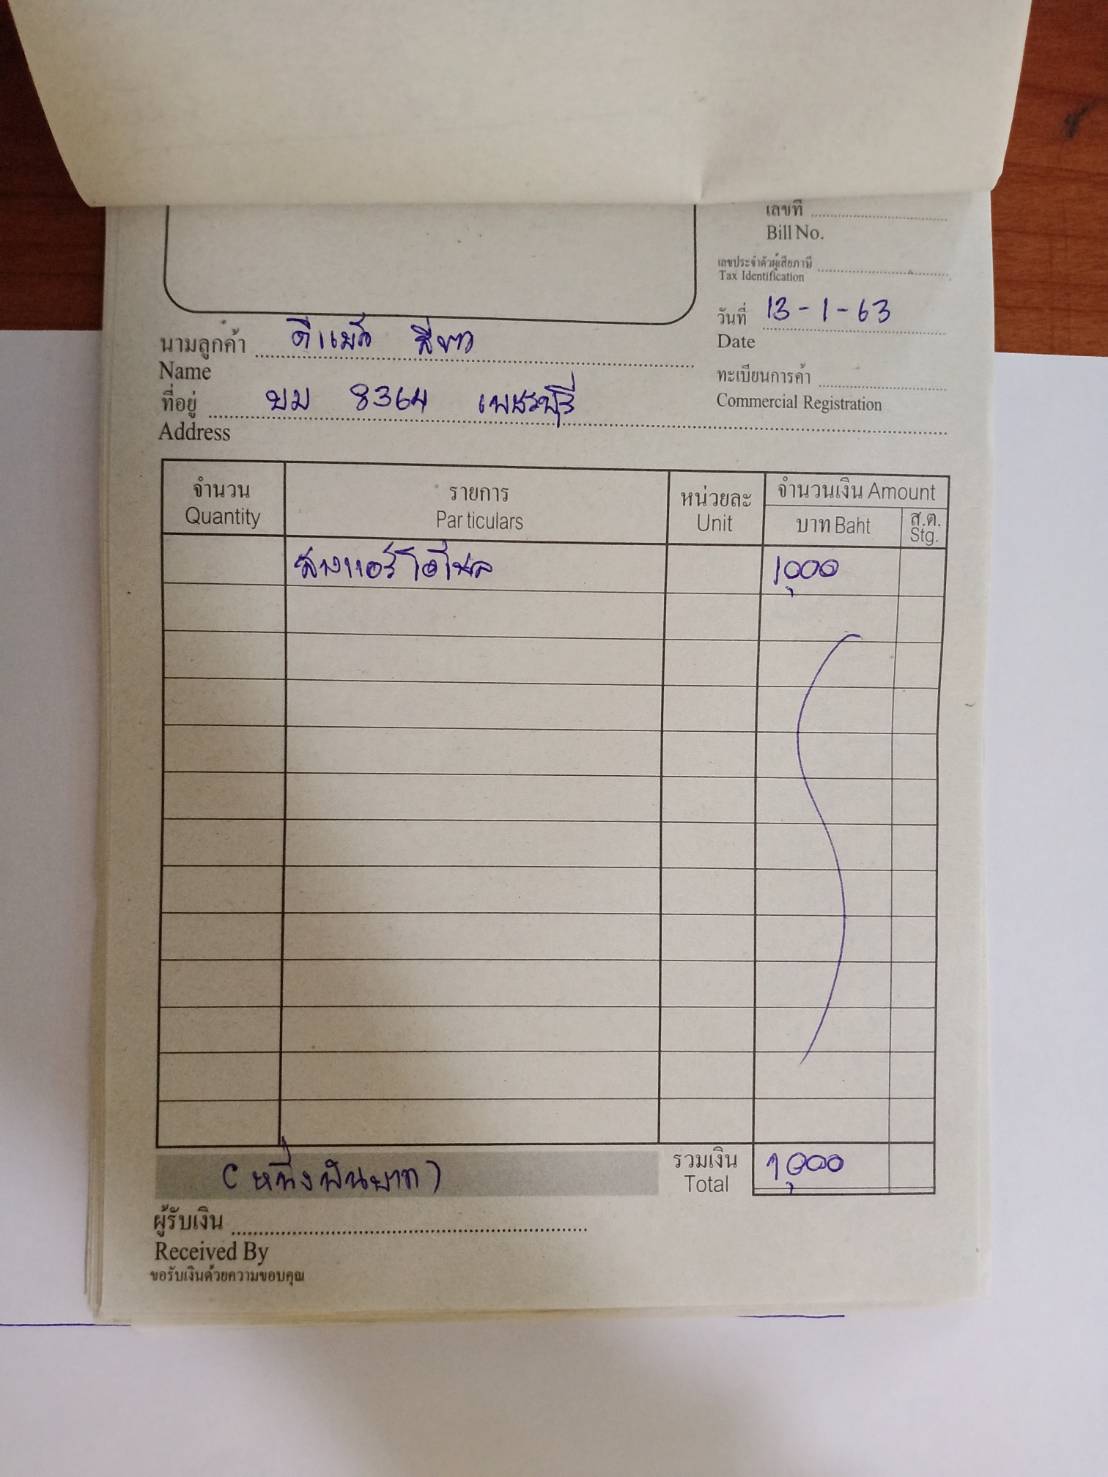 เลขที่
Bill No.
เลขประจำตัวผู้เสียภาษี
Tax Identification
วันที่ 13-1-63
Date
นามลูกค้า ดีแม็ก สีขาว
Name
ทะเบียนการค้า
Commercial Registration
ที่อยู่ บม 8364 เพชรบุรี
Address
จำนวน รายการ หน่วยละ จำนวนเงิน Amount
Quantity Particulars Unit บาท Baht ส.ต. Stg.
ล้างแอร์ 1,000
(หนึ่งพันบาท) รวมเงิน 1,000
Total
ผู้รับเงิน
Received By
ขอรับเงินด้วยความขอบคุณ